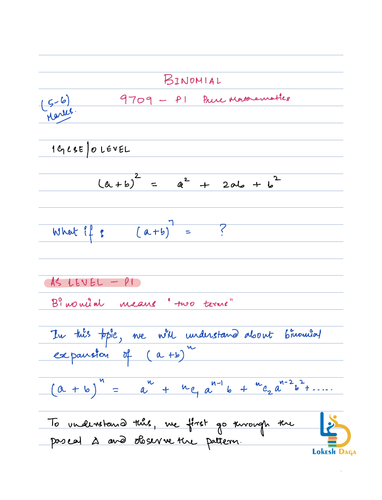 BINOMIAL
(5-6) Marks.
9709 - P1 Pure Mathematics
IGCSE/O LEVEL
(a+b)² = a² + 2ab + b²
What if : (a+b)⁷ = ?
AS LEVEL - P1
Binomial means "two terms"
In this topic, we will understand about binomial
expansion of (a+b)ⁿ
(a+b)ⁿ = aⁿ + ⁿC₁ aⁿ⁻¹ b + ⁿC₂ aⁿ⁻² b² + .....
To understand this, we first go through the
pascal Δ and observe the pattern.
LOKESH DAGA